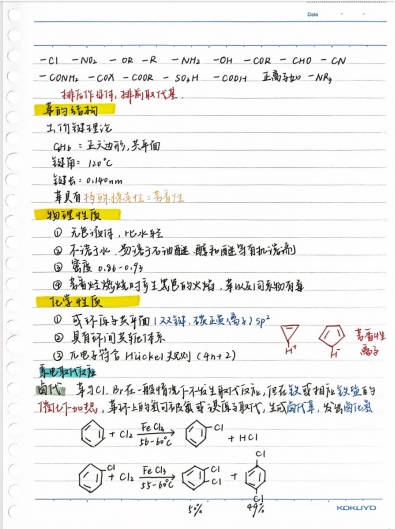 Date
-Cl -NO₂ -OR -R -NH₂ -OH -COR -CHO -CN
-CONH₂ -COX -COOR -SO₃H -COOH 正离子如 -NR₃
排后作母体,排前取代基.
苯的结构
1.价键理论
C₆H₆:正六边形,共平面
键角:120°C
键长:0.140nm
苯具有特殊稳定性:芳香性
物理性质
① 无色液体,比水轻
② 不溶于水,易溶于石油醚、醇和醚等有机溶剂
③ 密度 0.86-0.93
④ 芳香烃燃烧时产生黑色的火焰,苯以及同系物有毒
化学性质
① 成环原子共平面(双键、碳正负离子)sp²
② 具有环闭共轭体系
③ 电子符合 Hückel 规则(4n+2)
芳香性
离子
H⁺ H⁻
亲电取代反应
卤代 苯与Cl、Br在一般情况下不发生取代反应,但在铁或相应铁盐的
催化下加热,苯环上的氢可被氯或溴原子取代,生成卤代苯,发出卤化氢
+ Cl₂ FeCl₃ 56-60°C Cl + HCl
Cl + Cl₂ FeCl₃ 55-60°C Cl Cl + Cl Cl
50% 49%
KOKUYO